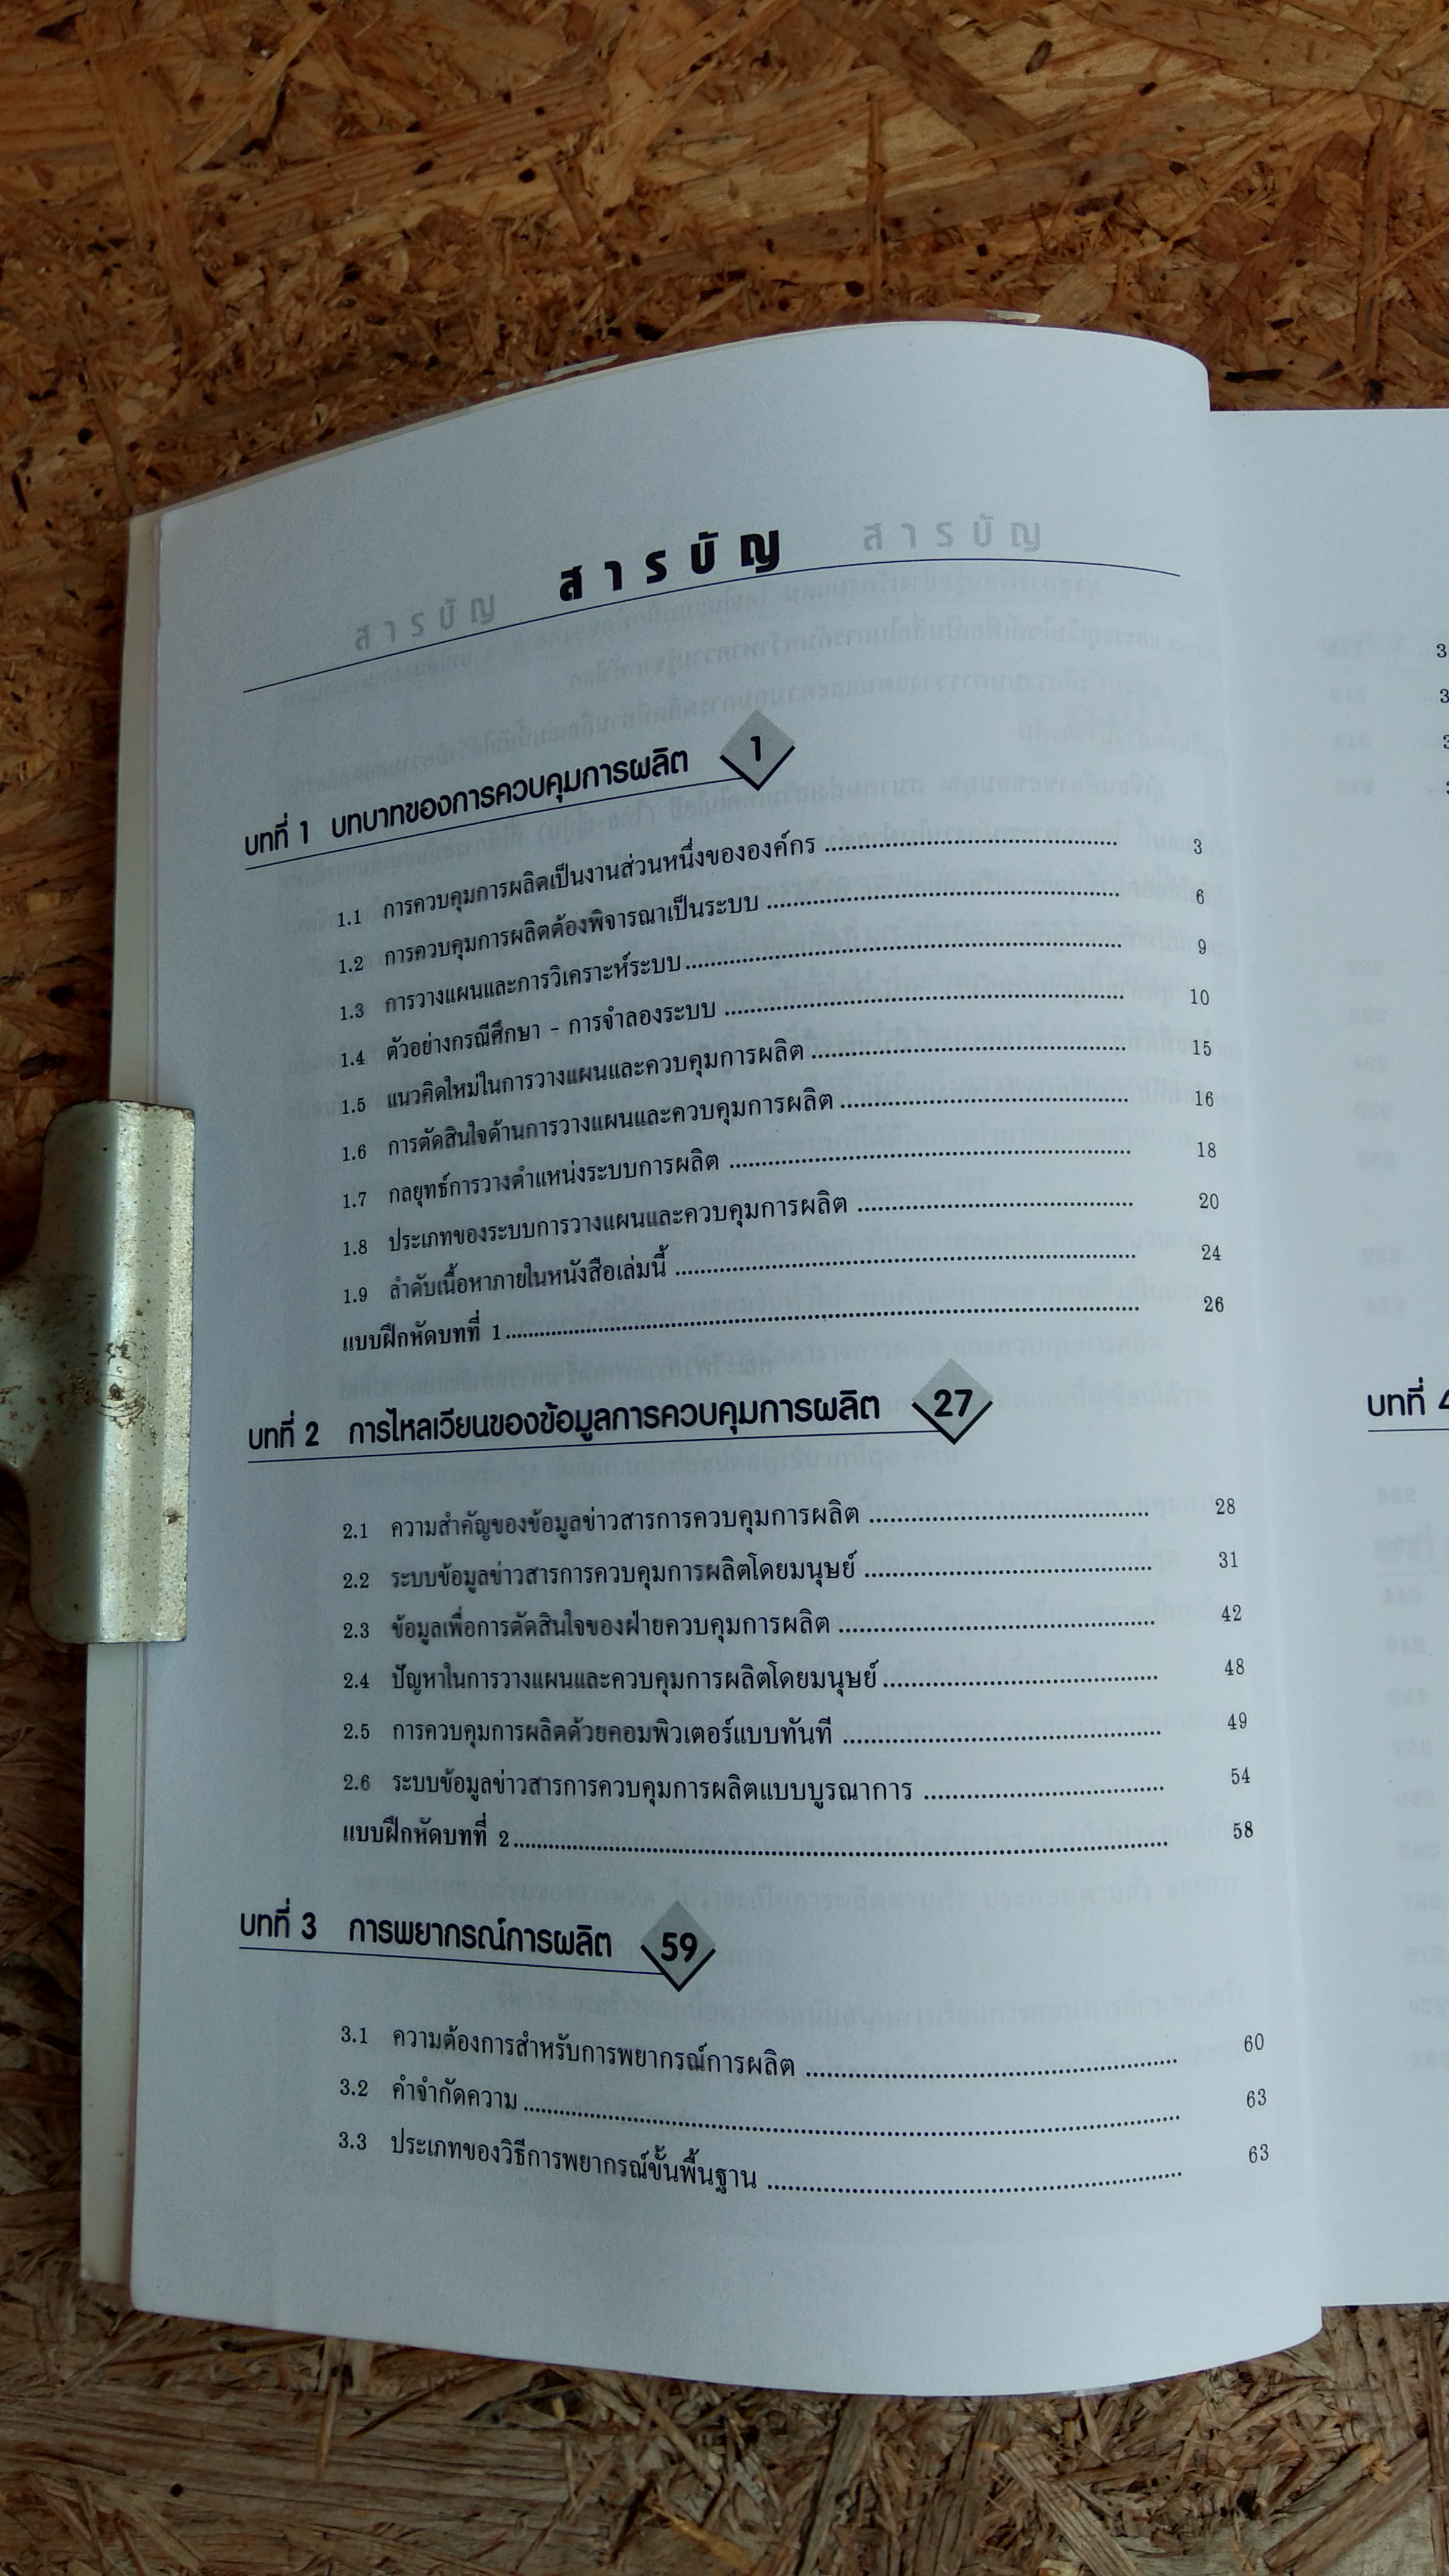 สารบัญ สารบัญ สารบัญ
บทที่ 1 บทบาทของการควบคุมการผลิต 1
1.1 การควบคุมการผลิตเป็นงานส่วนหนึ่งขององค์กร ........................ 3
1.2 การควบคุมการผลิตต้องพิจารณาเป็นระบบ ........................ 6
1.3 การวางแผนและการวิเคราะห์ระบบ ........................ 9
1.4 ตัวอย่างกรณีศึกษา - การจำลองระบบ ........................ 10
1.5 แนวคิดใหม่ในการวางแผนและควบคุมการผลิต ........................ 15
1.6 การตัดสินใจด้านการวางแผนและควบคุมการผลิต ........................ 16
1.7 กลยุทธ์การวางตำแหน่งระบบการผลิต ........................ 18
1.8 ประเภทของระบบการวางแผนและควบคุมการผลิต ........................ 20
1.9 ลำดับเนื้อหาภายในหนังสือเล่มนี้ ........................ 24
แบบฝึกหัดบทที่ 1 ........................ 26
บทที่ 2 การไหลเวียนของข้อมูลการควบคุมการผลิต 27
2.1 ความสำคัญของข้อมูลข่าวสารการควบคุมการผลิต ........................ 28
2.2 ระบบข้อมูลข่าวสารการควบคุมการผลิตโดยมนุษย์ ........................ 31
2.3 ข้อมูลเพื่อการตัดสินใจของฝ่ายควบคุมการผลิต ........................ 42
2.4 ปัญหาในการวางแผนและควบคุมการผลิตโดยมนุษย์ ........................ 48
2.5 การควบคุมการผลิตด้วยคอมพิวเตอร์แบบทันที ........................ 49
2.6 ระบบข้อมูลข่าวสารการควบคุมการผลิตแบบบูรณาการ ........................ 54
แบบฝึกหัดบทที่ 2 ........................ 58
บทที่ 3 การพยากรณ์การผลิต 59
3.1 ความต้องการสำหรับการพยากรณ์การผลิต ........................ 60
3.2 คำจำกัดความ ........................ 63
3.3 ประเภทของวิธีการพยากรณ์ขั้นพื้นฐาน ........................ 63
บทที่ 4